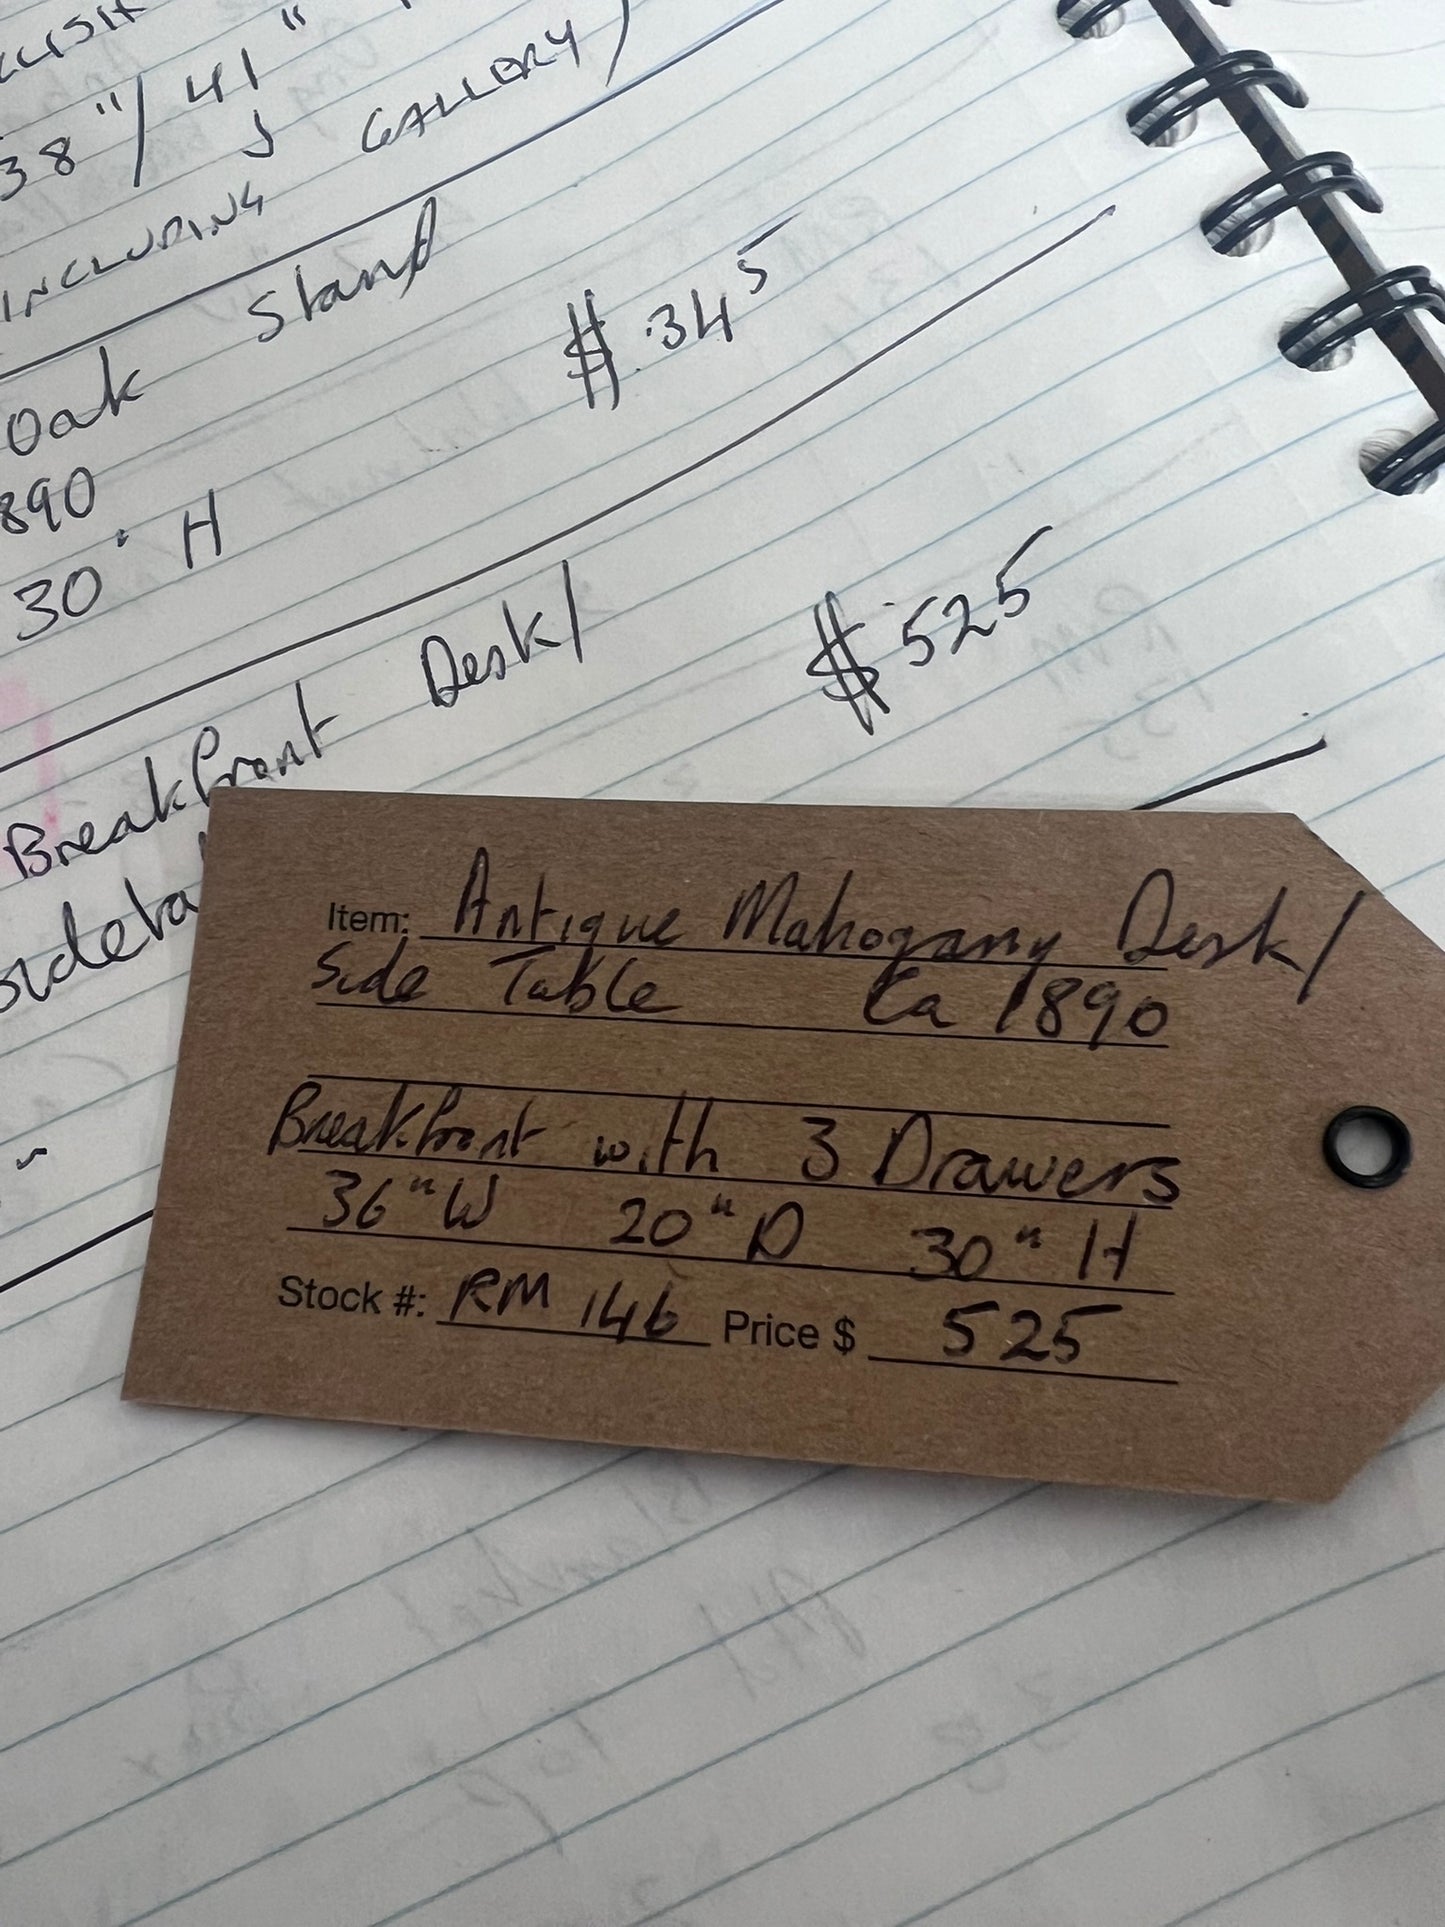 38"/41"
INCLUDING GALLERY)
Oak Stand $345
890
30" H
Breakfront Desk/ $525
Item: Antique Mahogany Desk/
Side Table Ca 1890
Breakfront with 3 Drawers
36"W 20"D 30"H
Stock #: RM 146 Price $ 525